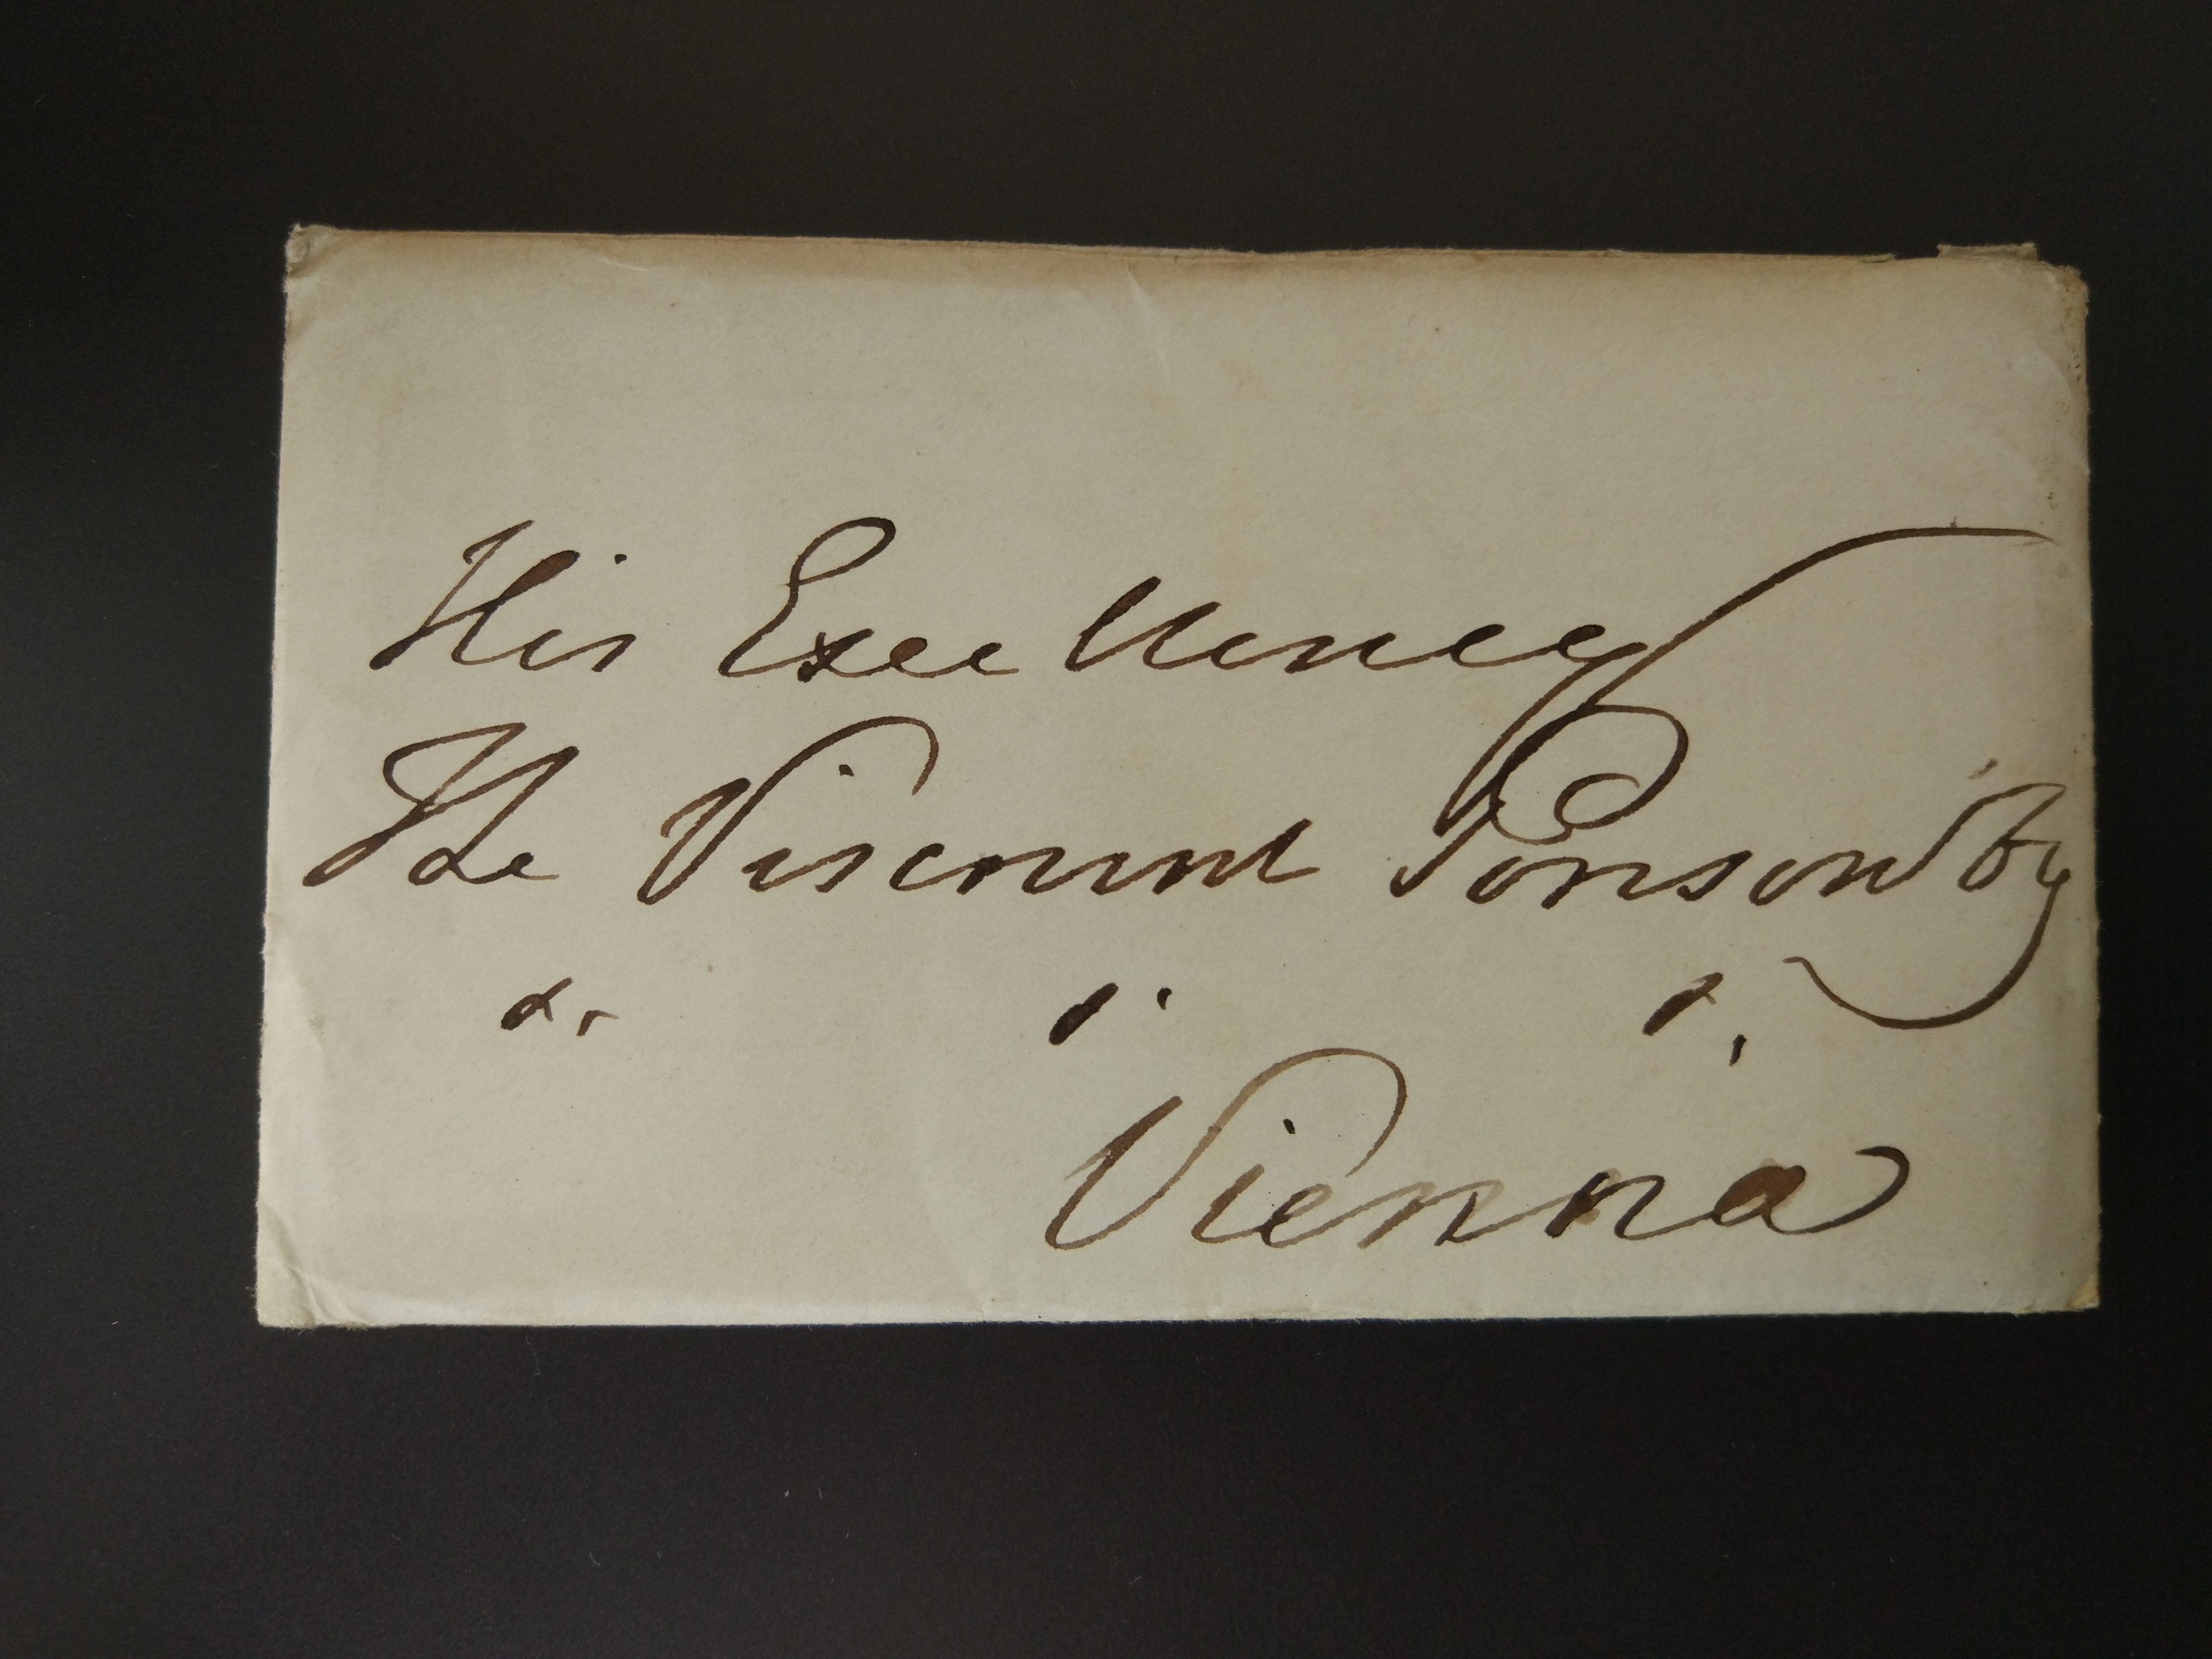 His Excellency
The Viscount Ponsonby
&. &. &.
Vienna